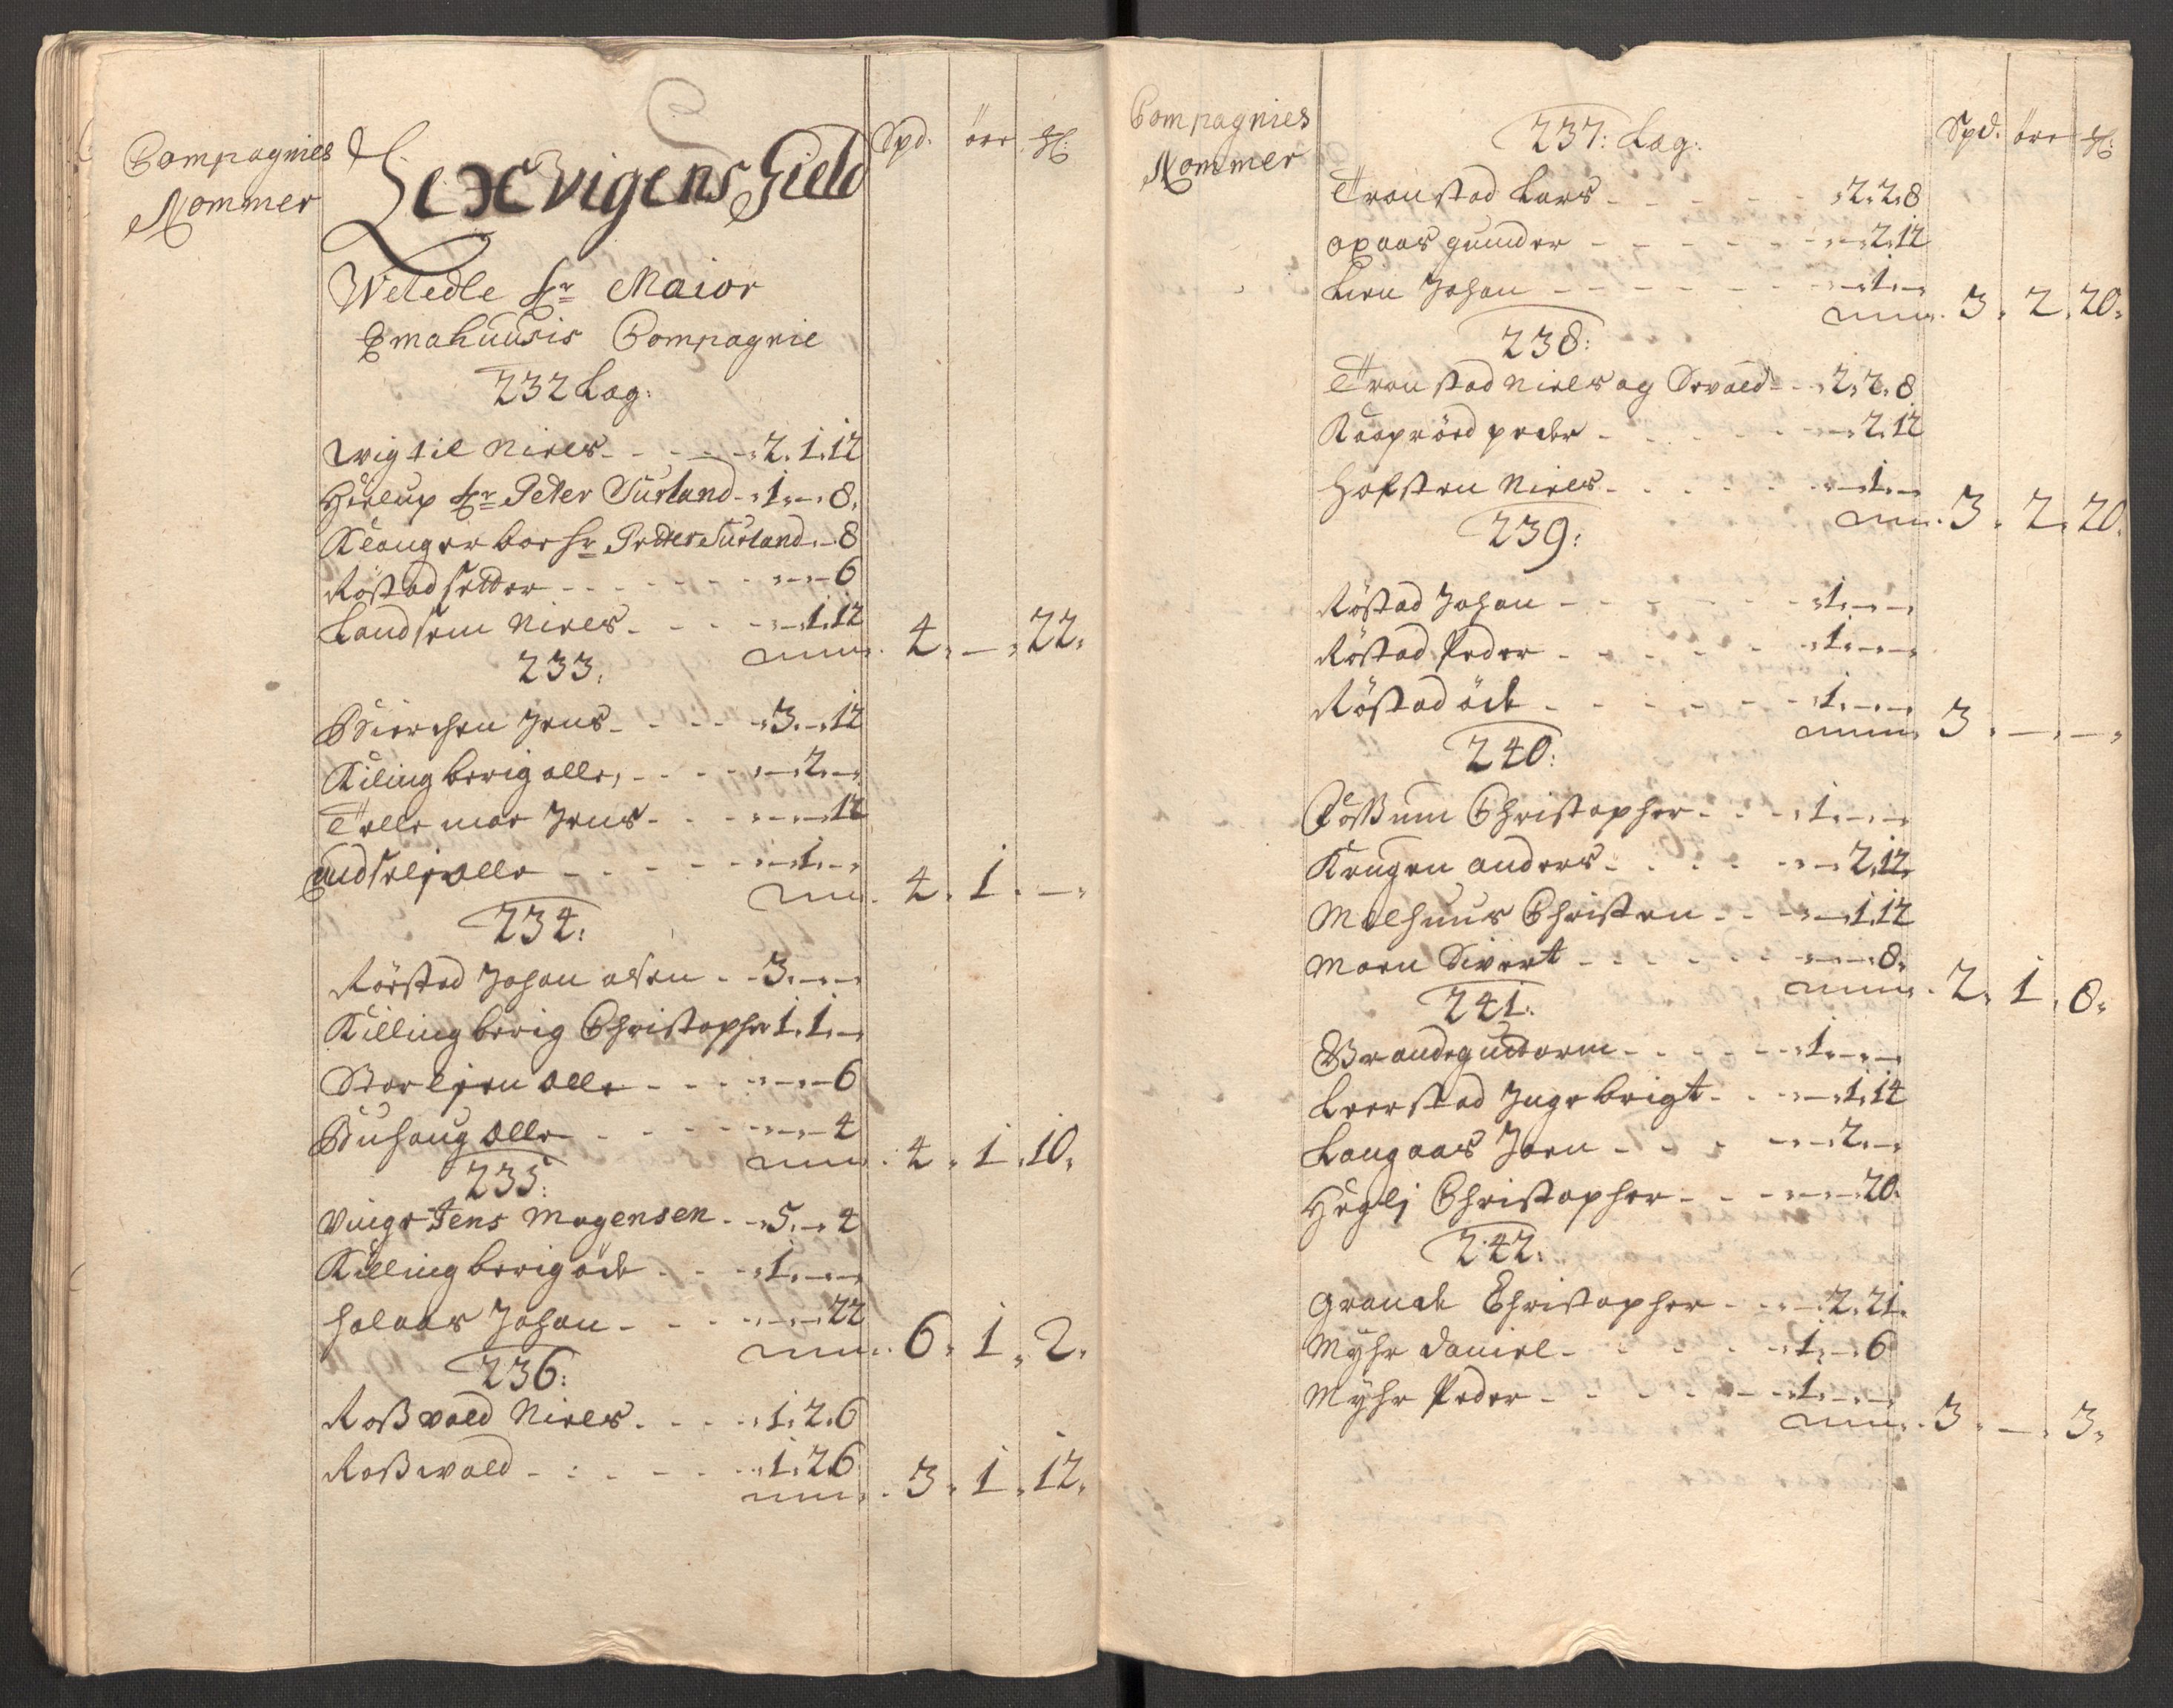 Compagnies
Nommer
Lexvigens Gield
Spd. öre ℔:
Weledle Hr Maior
Emahuusis Compagnie
232 Lag:
Wigtil Niels - - - 2. 1. 12
Hielup Hr Peter Surland - 1. - 8.
Klangerboe Hr Petter Surland - 8
Röstad Petter - - - 6
Landsem Niels - - - 1. 12
4. - 22.
233.
Bierchen Jens - - - 3. - 12
Kilingberig olle, - - - 2. -
Telle moe Jens - - - 12
undselj olle - - - 1. -
4. 1. -
234.
Rörstad Johan olsen - - 3. - -
Killingberig Christopher 1. 1. -
Storlien olle - - - 6
Buhaug olle - - - 4
4. 1. 10.
235.
Vinge Jens Mogensen - 5. - 4
Killingberig öde - - - 1. - -
holaas Johan - - - 22
6. 1. 2.
236:
Roßvold Niels - - - 1. 2. 6
Roßwold - - - 1. 2. 6
3. 1. 12.
Compagnies
Nommer
237: Lag:
Spd. öre ℔:
Tronstad Lars - - - 2. 2. 8
opaas gunder - - - 2. 12
Lien Johan - - - 1. -
3. 2. 20.
238:
Tronstad Niels og Sevald - - 2. 2. 8
Kaapröed peder - - - 2. 12
Hofsten Niels - - - 1. -
3. 2. 20.
239:
Röstad Johan - - - 1. - -
Röstad Peder - - - 1. - -
Röstad öde - - - 1. - -
3. - -
240:
Foßum Christopher - - - 1. - -
Krugen anders - - - 2. 12.
Melhuus Christen - - - 1. 12
Moen Sivert - - - 8.
2. 1. 8.
241:
Brandeguttorm - - - 1. - -
Leerstad Ingebrigt - - - 1. 14
Langaas Joen - - - 2. -
Heglj Christopher - - - 20.
242:
Grande Christopher - - - 2. 21.
Myhr Daniel - - - 1. - 6
Myhr Peder - - - 1. - -
3. - 3.